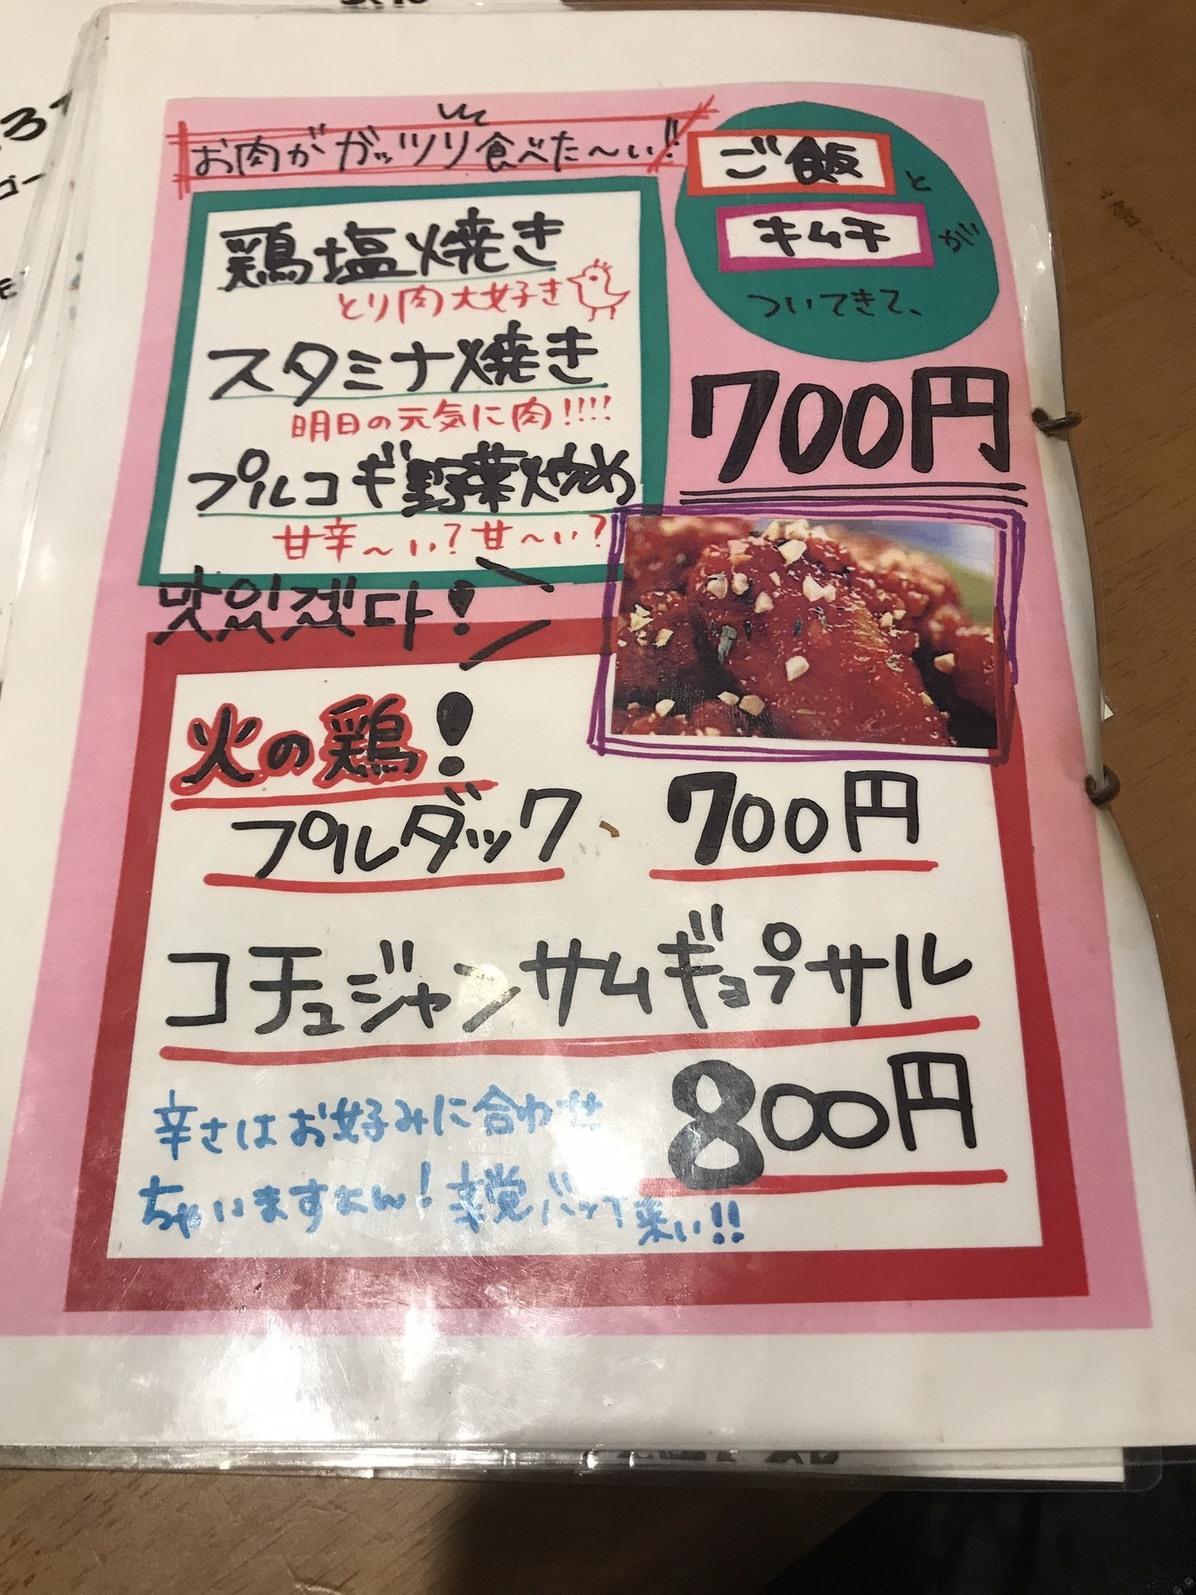 お肉がガッツリ食べた〜い!!
ご飯と
キムチが
ついてきて、
700円
鶏塩焼き
とり肉大好き
スタミナ焼き
明日の元気に肉!!!!
プルコギ野菜炒め
甘辛〜い?甘〜い?
맛있겠다!
火の鶏!
プルダック 700円
コチュジャンサムギョプサル
800円
辛さはお好みに合わせ
ちゃいますよん! 辛党バッチ来い!!